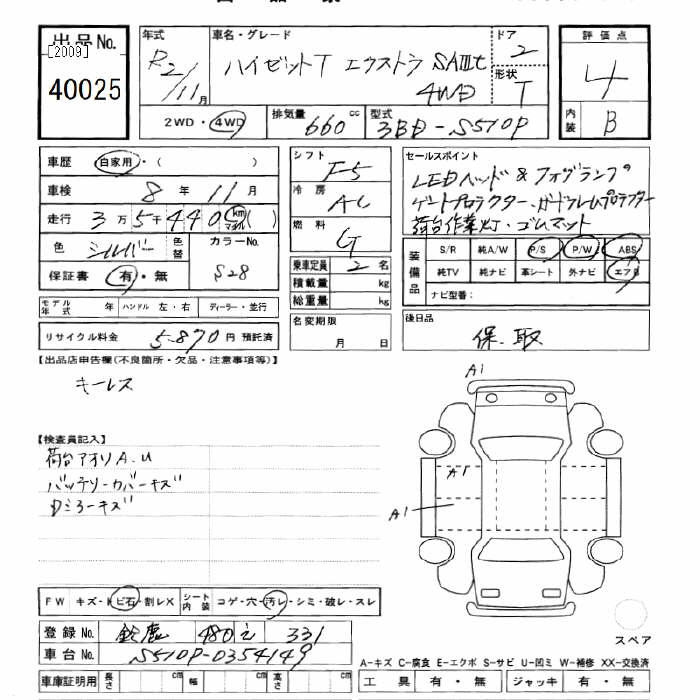 出品No.
[2009]
40025
年式
R2/11月
車名・グレード
ハイゼットT エクストラ SAⅢt
4WD
ドア
2
形状
T
2WD・4WD
排気量
660 cc
型式
3BD-S510P
評価点
4
内装
B
車歴
自家用・( )
車検
8年11月
走行
3万5千440 km マイル( )
色
シルバー
色替
カラーNo.
S28
保証書
有・無
モデル年式 年
ハンドル 左・右
ディーラー・並行
リサイクル料金
5,870円 預託済
シフト
F5
冷房
AC
燃料
G
乗車定員
2名
積載量 kg
総重量 kg
名変期限
月 日
セールスポイント
LEDヘッド&フォグランプ
ゲートプロテクター・ガードフレームプロテクター
荷台作業灯・ゴムマット
装備品
S/R 純A/W P/S P/W ABS
純TV 純ナビ 革シート 外ナビ エアB
ナビ型番:
後日品
保・取
【出品店申告欄(不良箇所・欠品・注意事項等)】
キーレス
【検査員記入】
荷台アオリA.U
バッテリーカバーキズ
Dミラーキズ
A1
A1
A1
スペア
FW キズ・ト ビ石・割レX
シート内装 コゲ・穴・汚レ・シミ・破レ・スレ
登録No.
鈴鹿 480 え 331
車台No.
S510P-0354149
車庫証明用
長さ cm 幅 cm 高さ cm
A-キズ C-腐食 E-エクボ S-サビ U-凹ミ W-補修 XX-交換済
工具 有・無 ジャッキ 有・無